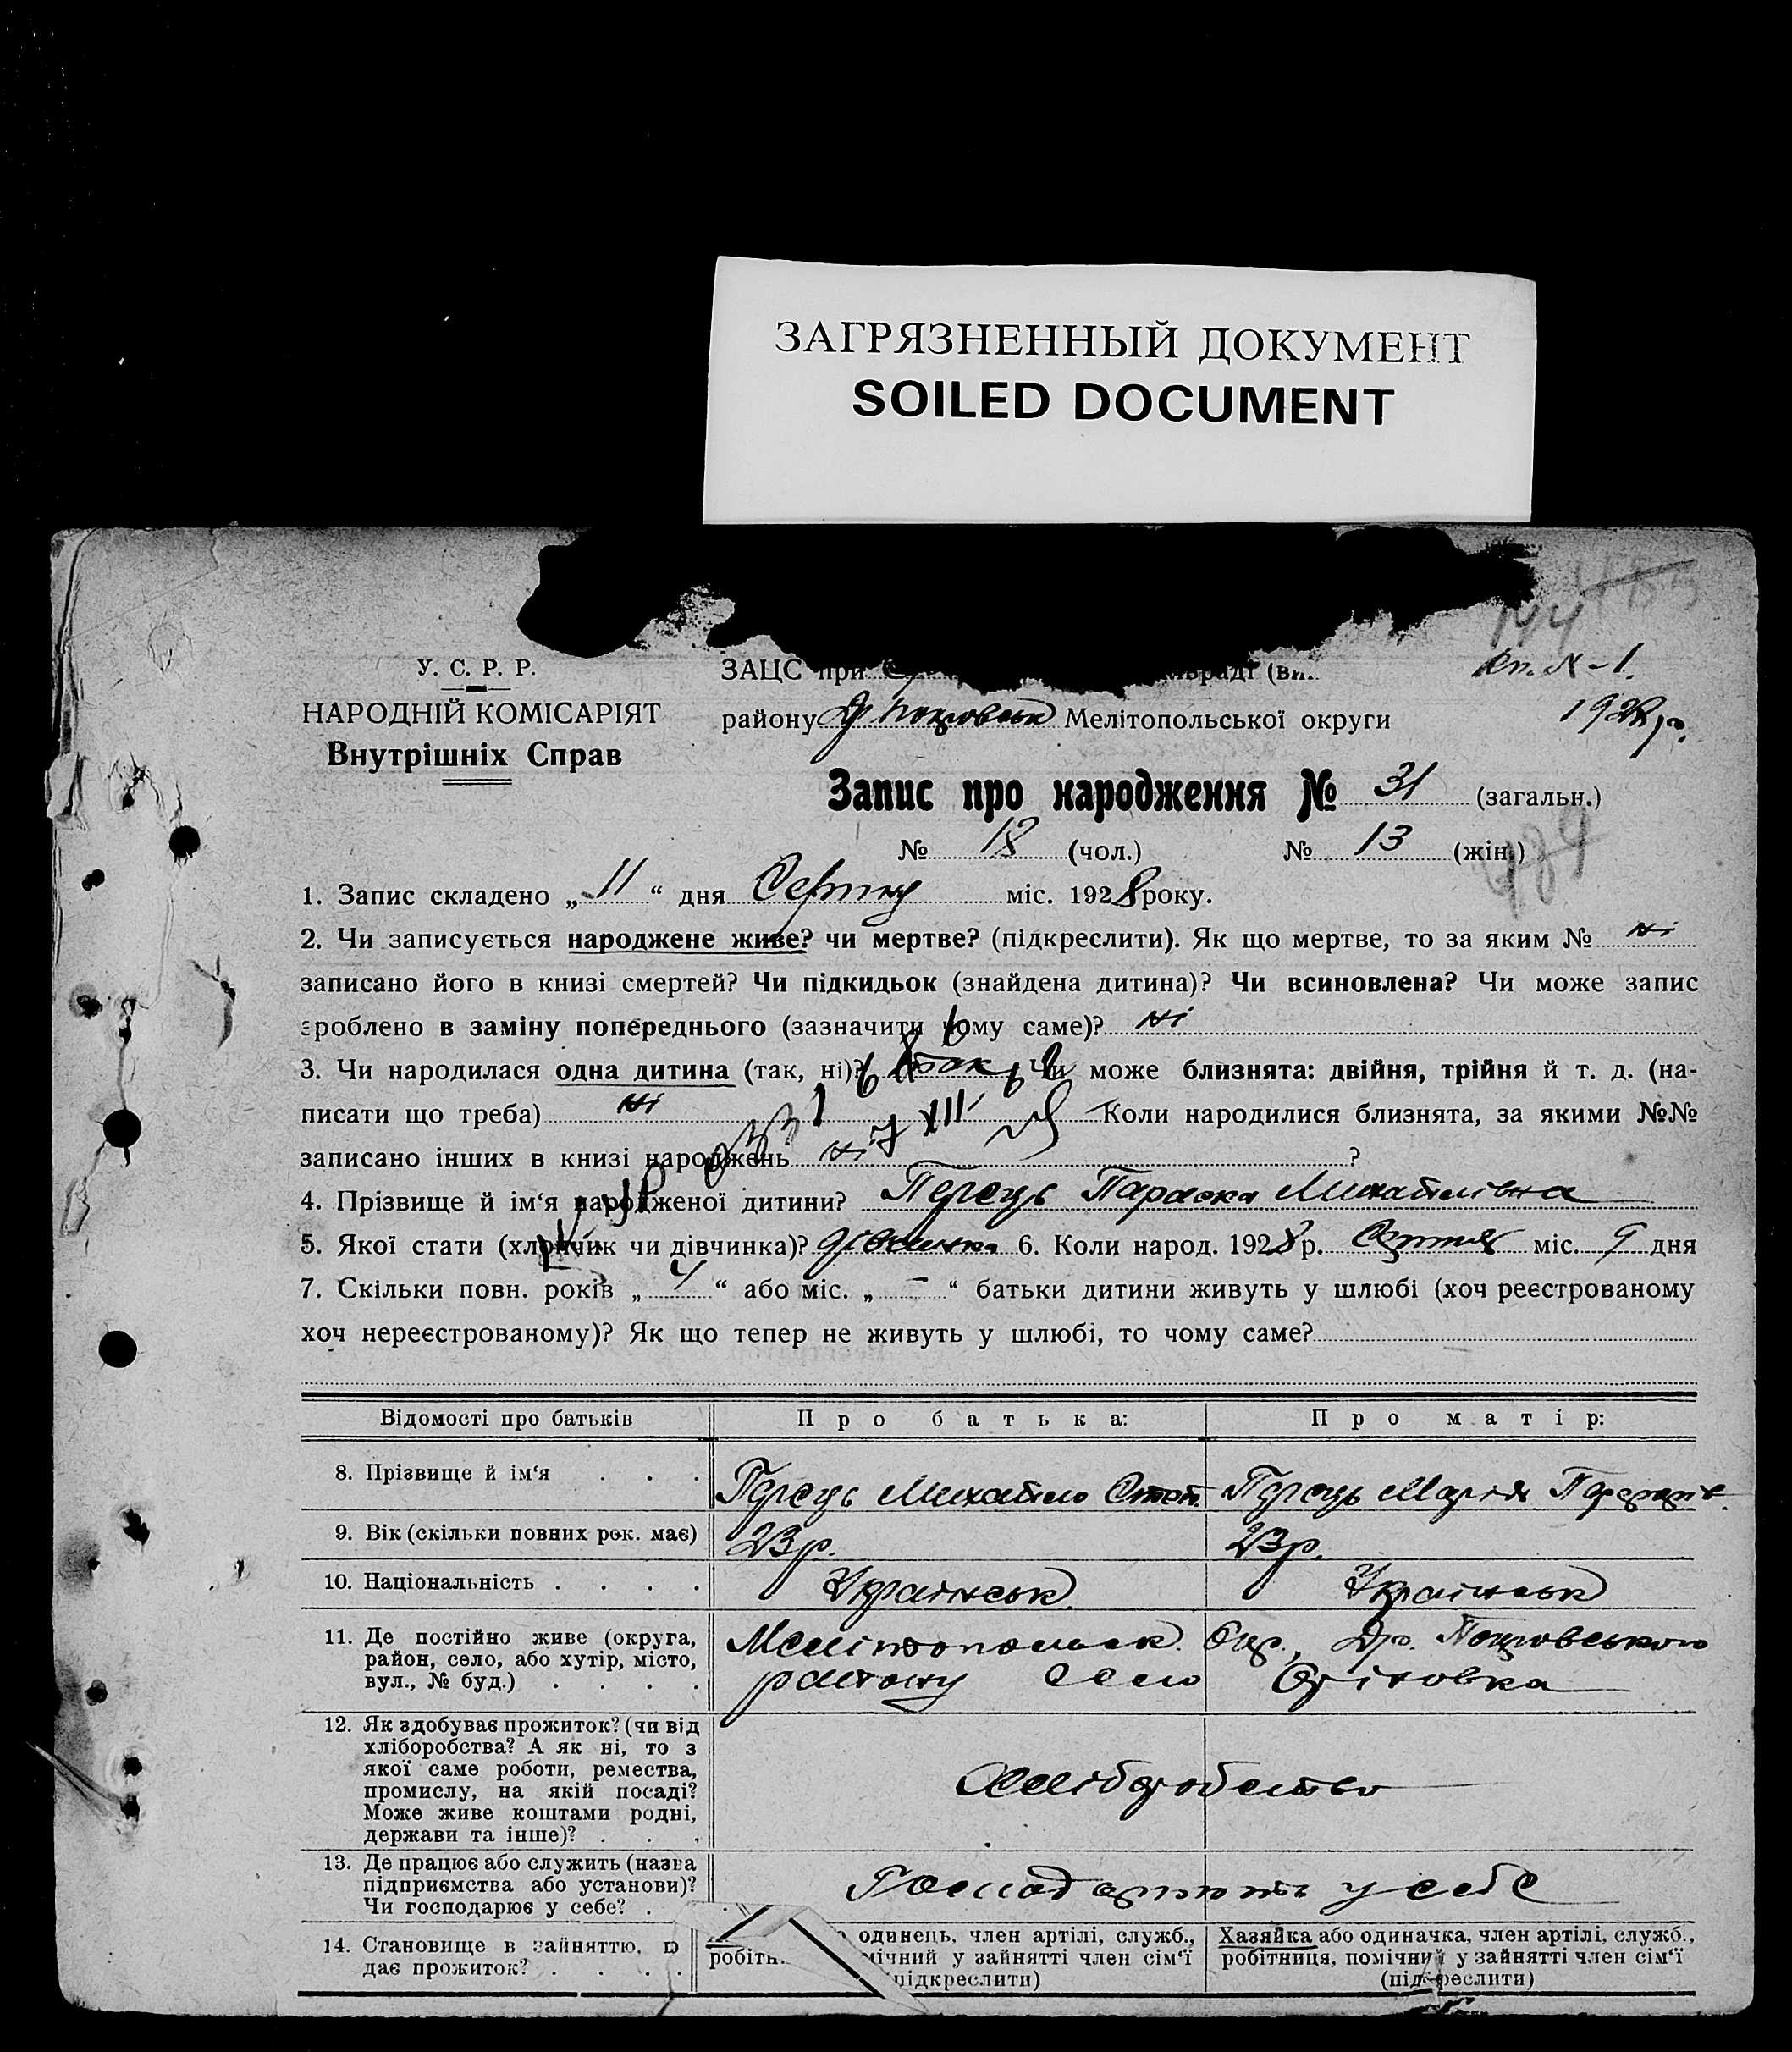 ЗАГРЯЗНЕННЫЙ ДОКУМЕНТ
SOILED DOCUMENT
144
У. С. Р. Р.
НАРОДНІЙ КОМІСАРІЯТ
Внутрішніх Справ
ЗАЦС при
району Мелітопольської округи
1928 р.
Запис про народження № 31 (загальн.)
№ 18 (чол.) № 13 (жін.)
1. Запис складено „ 11 “ дня Серпня міс. 1928 року.
2. Чи записується народжене живе? чи мертве? (підкреслити). Як що мертве, то за яким № ні
записано його в книзі смертей? Чи підкидьок (знайдена дитина)? Чи всиновлена? Чи може запис
зроблено в заміну попереднього (зазначити чому саме)? ні
3. Чи народилася одна дитина (так, ні)? так Чи може близнята: двійня, трійня й т. д. (на-
писати що треба) ні Коли народилися близнята, за якими №№
записано інших в книзі народжень ні ?
4. Прізвище й ім‘я народженої дитини? Перець Параска Михайлівна
5. Якої стати (хлопчик чи дівчинка)? дівчинка 6. Коли народ. 1928 р. Серпня міс. 9 дня
7. Скільки повн. років „ 4 “ або міс. „ – “ батьки дитини живуть у шлюбі (хоч реєстрованому
хоч нереєстрованому)? Як що тепер не живуть у шлюбі, то чому саме?
Відомості про батьків Про батька: Про матір:
8. Прізвище й ім‘я . . . Перець Михайло Степ. Перець Марія
9. Вік (скільки повних рок. має) 23 р. 23 р.
10. Національність . . . . Українськ Українськ
11. Де постійно живе (округа, район, село, або хутір, місто, вул., № буд.) . . . . Мелітопольськ. Окр., Др. Покровського
району село
12. Як здобуває прожиток? (чи від хліборобства? А як ні, то з якої саме роботи, ремества, промислу, на якій посаді? Може живе коштами родні, держави та інше)? . . . Хлібробство
13. Де працює або служить (назва підприємства або установи)? Чи господарює у себе? . Господарюють у себе
14. Становище в зайняттю, дає прожиток? . . . .
одинець, член артілі, служб.,
у зайнятті член сім‘ї
підкреслити)
Хазяйка або одиначка, член артілі, служб.,
робітниця, помічний у зайнятті член сім‘ї
(підкреслити)